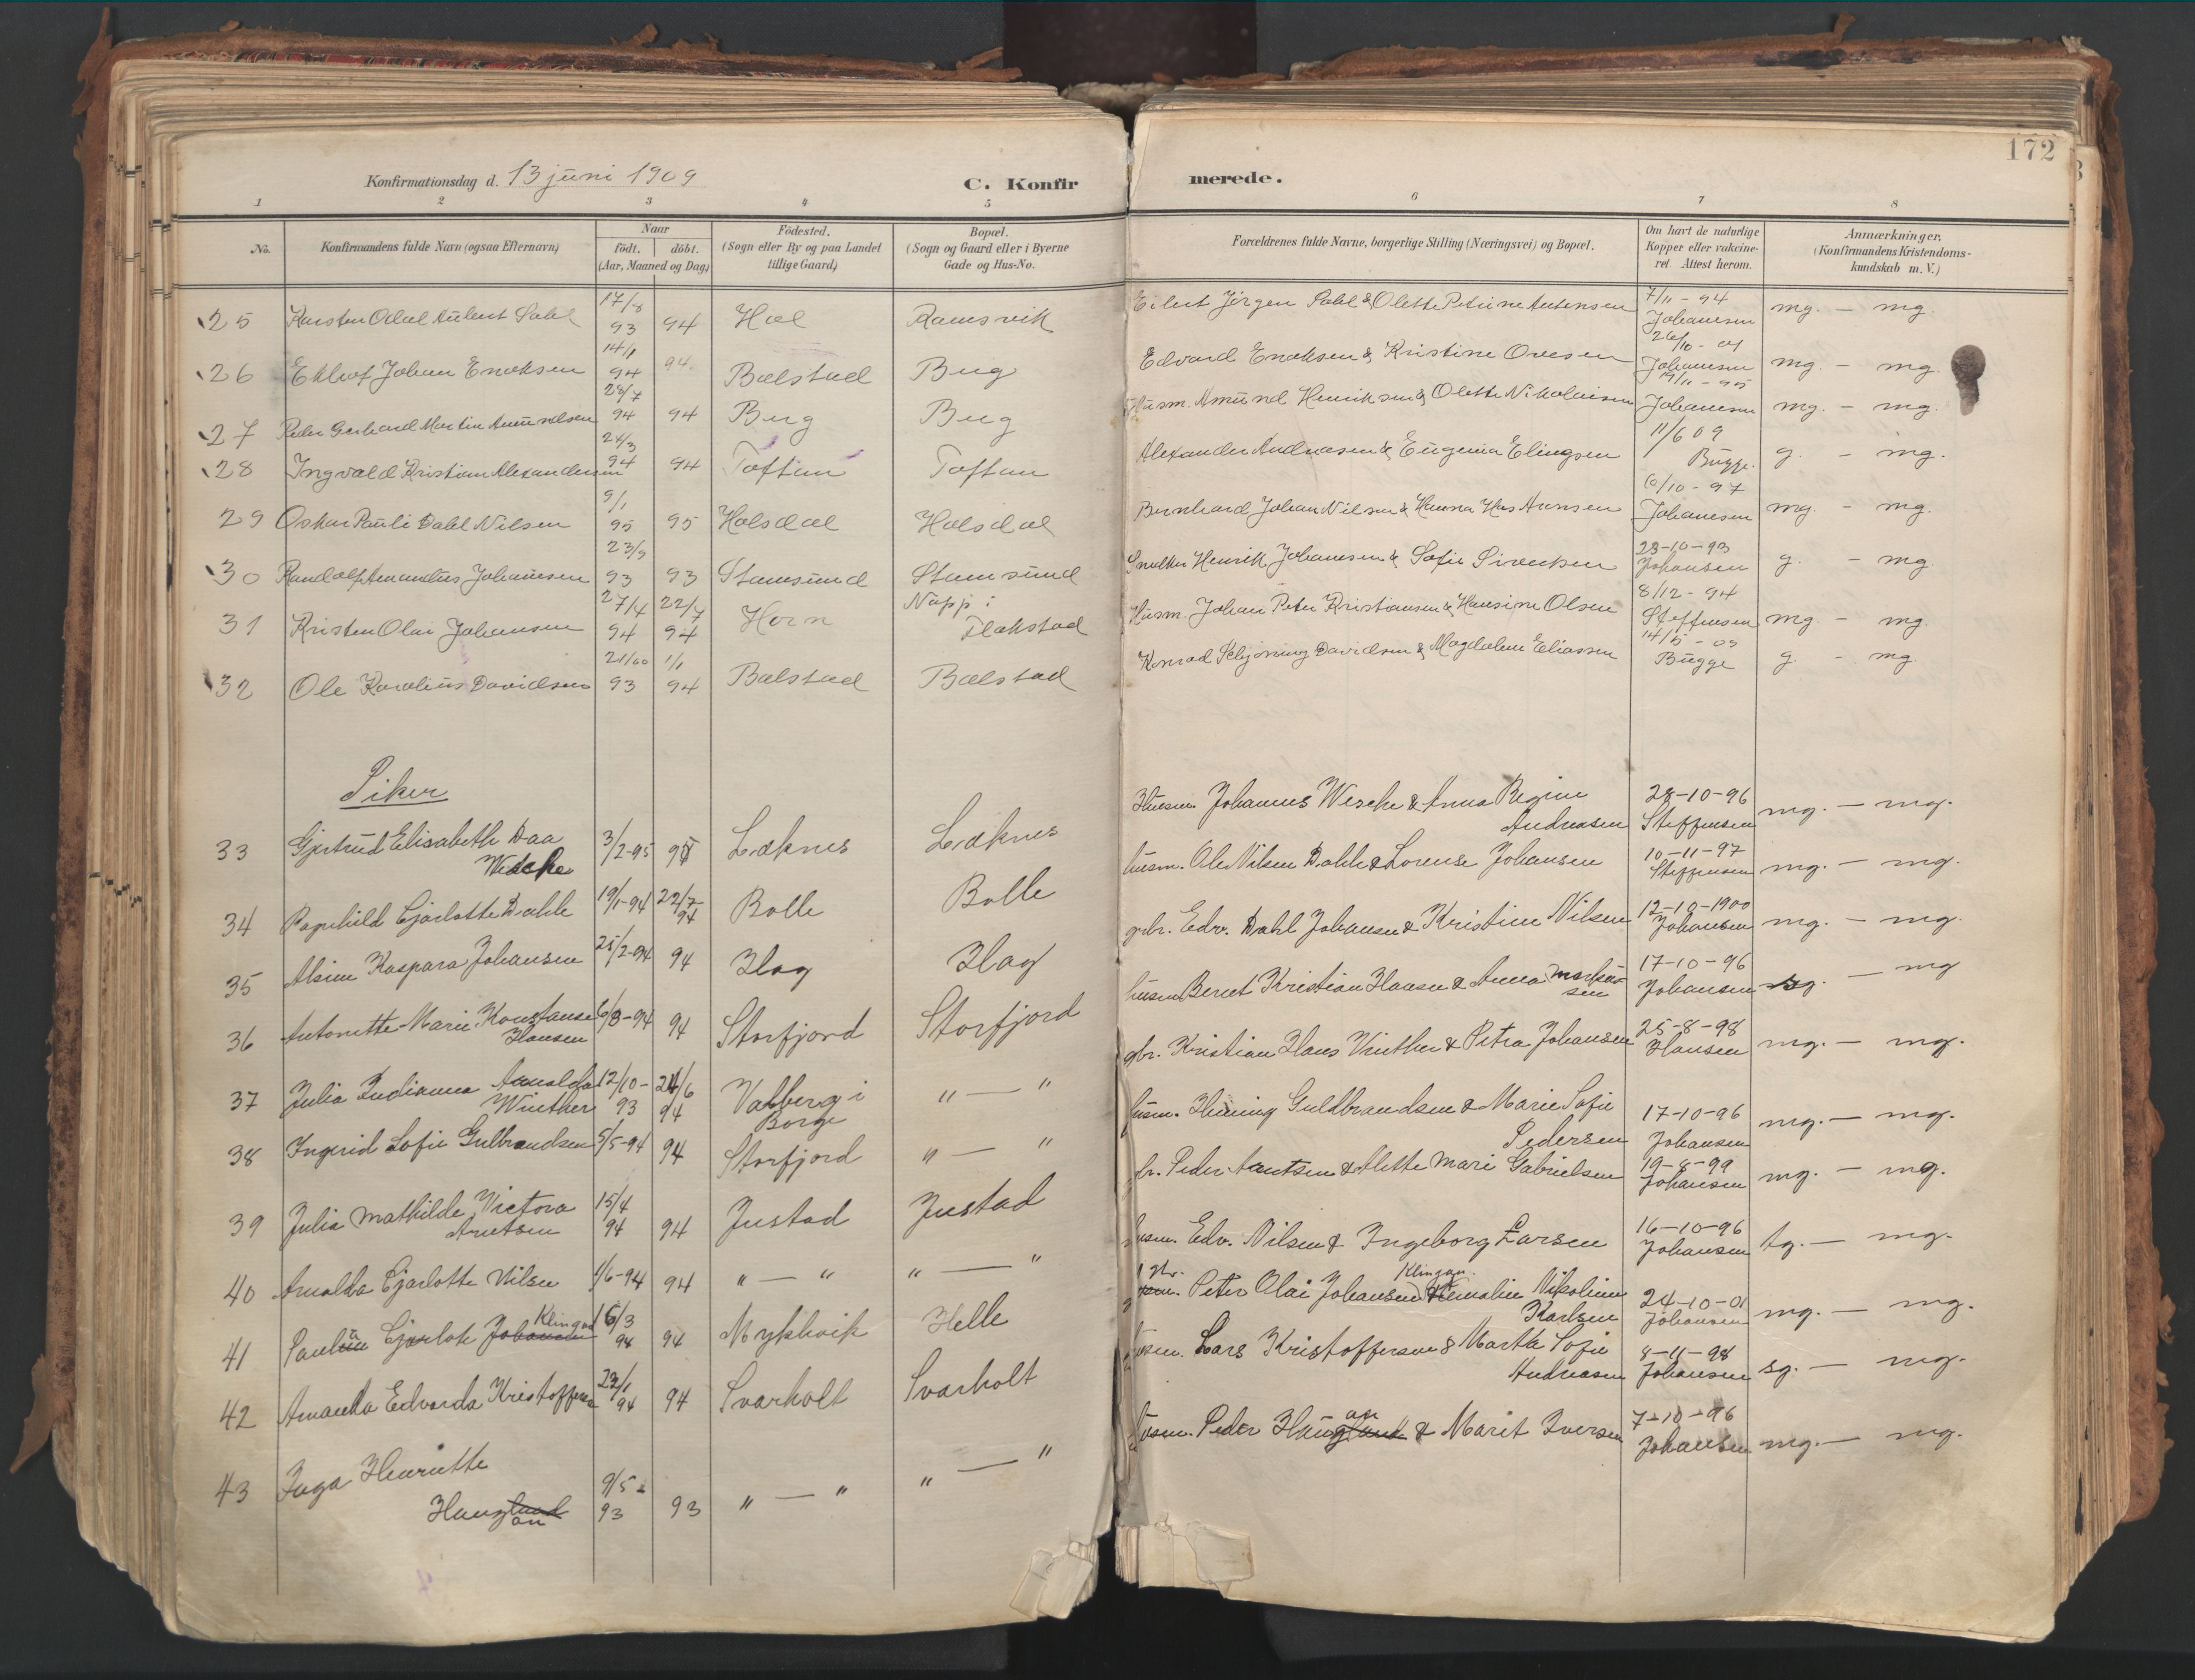 172
Konfirmationsdag d. 13 juni 1909
C. Konfirmerede.
1 2 3 4 5 6 7 8
No.
Konfirmandens fulde Navn (ogsaa Efternavn)
Naar
födt. döbt.
(Aar, Maaned og Dag)
Födested.
(Sogn eller By og paa Landet
tillige Gaard)
Bopæl.
(Sogn og Gaard eller i Byerne
Gade og Hus-No.
Forældrenes fulde Navne, borgerlige Stilling (Næringsvei) og Bopæl.
Om havt de naturlige
Kopper eller vakcine-
ret Attest herom.
Anmærkninger,
(Konfirmandens Kristendoms-
kundskab m. V.)
25 Karsten Odal Aubert Dahl 17/8 93 94 Hol Ramsvik Eilert Jörgen Dahl & Olette Petrine Antonsen 7/11 - 94 Johansen mg. - mg.
26 Johan Enoksen 14/1 94 94. Balstad Bug Edvard Enoksen & Kristine Ovesen 26/10 - 01 Johansen mg. - mg.
27 Peder Gerhard Martin Amundsen 28/7 94 94 Bug Bug Husm. Amund Henriksen & Olette Nikolaisen 19/11 - 95 Johansen mg. - mg.
28 Ingvald Kristian Alexandersen 24/3 94 94 Toftan Toftan Alexander Andreasen & Eugenia Elingsen 11/6 09 Bugge. g. - mg.
29 Oskar Pauli Dahl Nilsen 9/1 95 95 Holsdal Holsdal Bernhard Johan Nilsen & Hanna Arnsen 6/10 - 97 Johansen mg. - mg.
30 Randolf Amandus Johansen 23/9 93 93 Stamsund Stamsund Snedker Henrik Johansen & Sofie Sivertsen 23-10-93 Johansen g. - mg.
31 Kristen Olai Johansen 27/4 94 22/7 94 Horn Napp i Flakstad Husm. Johan Peter Kristiansen & Hansine Olsen 8/12 - 94 Steffensen mg. - mg.
32 Ole Karolius Davidsen 21/10 93 1/1 94 Balstad Balstad Konrad Schjöning Davidsen & Magdalene Eliassen Bugge g. - mg.
Piker
33 Gjertrud Elisabeth Daa
Wesche 3/2-95 95 Leknes Leknes Husm. Johannes Wesche & Anna Regine
Andreasen 28-10-96 Steffensen mg. - mg.
34 Ragnhild Cjarlotte Dahle 19/1-94 22/7 94 Bolle Bolle husm. Ole Nilsen Dahle & Lorense Johansen 10-11-97 Steffensen mg. - mg.
35 Alsine Kaspara Johansen 25/2-94 94 Hag Hag gbr. Edv. Dahl Johansen & Kristine Nilsen 12-10-1900 Johansen mg. - mg.
36 Antonette Marie Konstanse
Hansen 6/8-94 94 Storfjord Storfjord husm Bernt Kristian Hansen & Anna Markus-
sen 17-10-96 Johansen sg. - mg
37 Julia Indianna Arnolda
Winther 12/10-93 24/6 94 Valberg i
Borge " — " gbr. Kristian Hans Vinther & Petra Johansen 25-8-98 Hansen mg. - mg.
38 Ingerid Sofie Gulbrandsen 5/5-94 94 Storfjord " — " husm. Hening Guldbrandsen & Marie Sofie
Pedersen 17-10-96 Johansen mg. - mg.
39 Julia Mathilde Victora
Arntsen 15/4 94 94 Justad Justad gbr. Peder Arntsen & Alette Mari Gabrielsen 19-8-99 Johansen mg. - mg.
40 Arnolda Cjarlotte Nilsen 1/6-94 94 " — " " — " husm. Edv. Nilsen & Ingeborg Larsen 16-10-96 Johansen tg. - mg.
41 Cjarlote Johansen Klingan 16/3 94 94 Mykhvik Helle gbr. Peter Olai Johansen Klingan & Nikoline
Karlsen 24-10-01 Johansen mg. - mg.
42 Amanda Edvarda Kristoffersen 22/1 94 94 Svarholt Svarholt husm. Lars Kristoffersen & Marthe Sofie
Andreasen 8-11-98 Johansen sg. - mg.
43 Inga Henriette
Haugland an 9/5 93 93 " — " " — " husm. Peder Haugland an & Marit Iversen 7-10-96 Johansen mg. - mg.